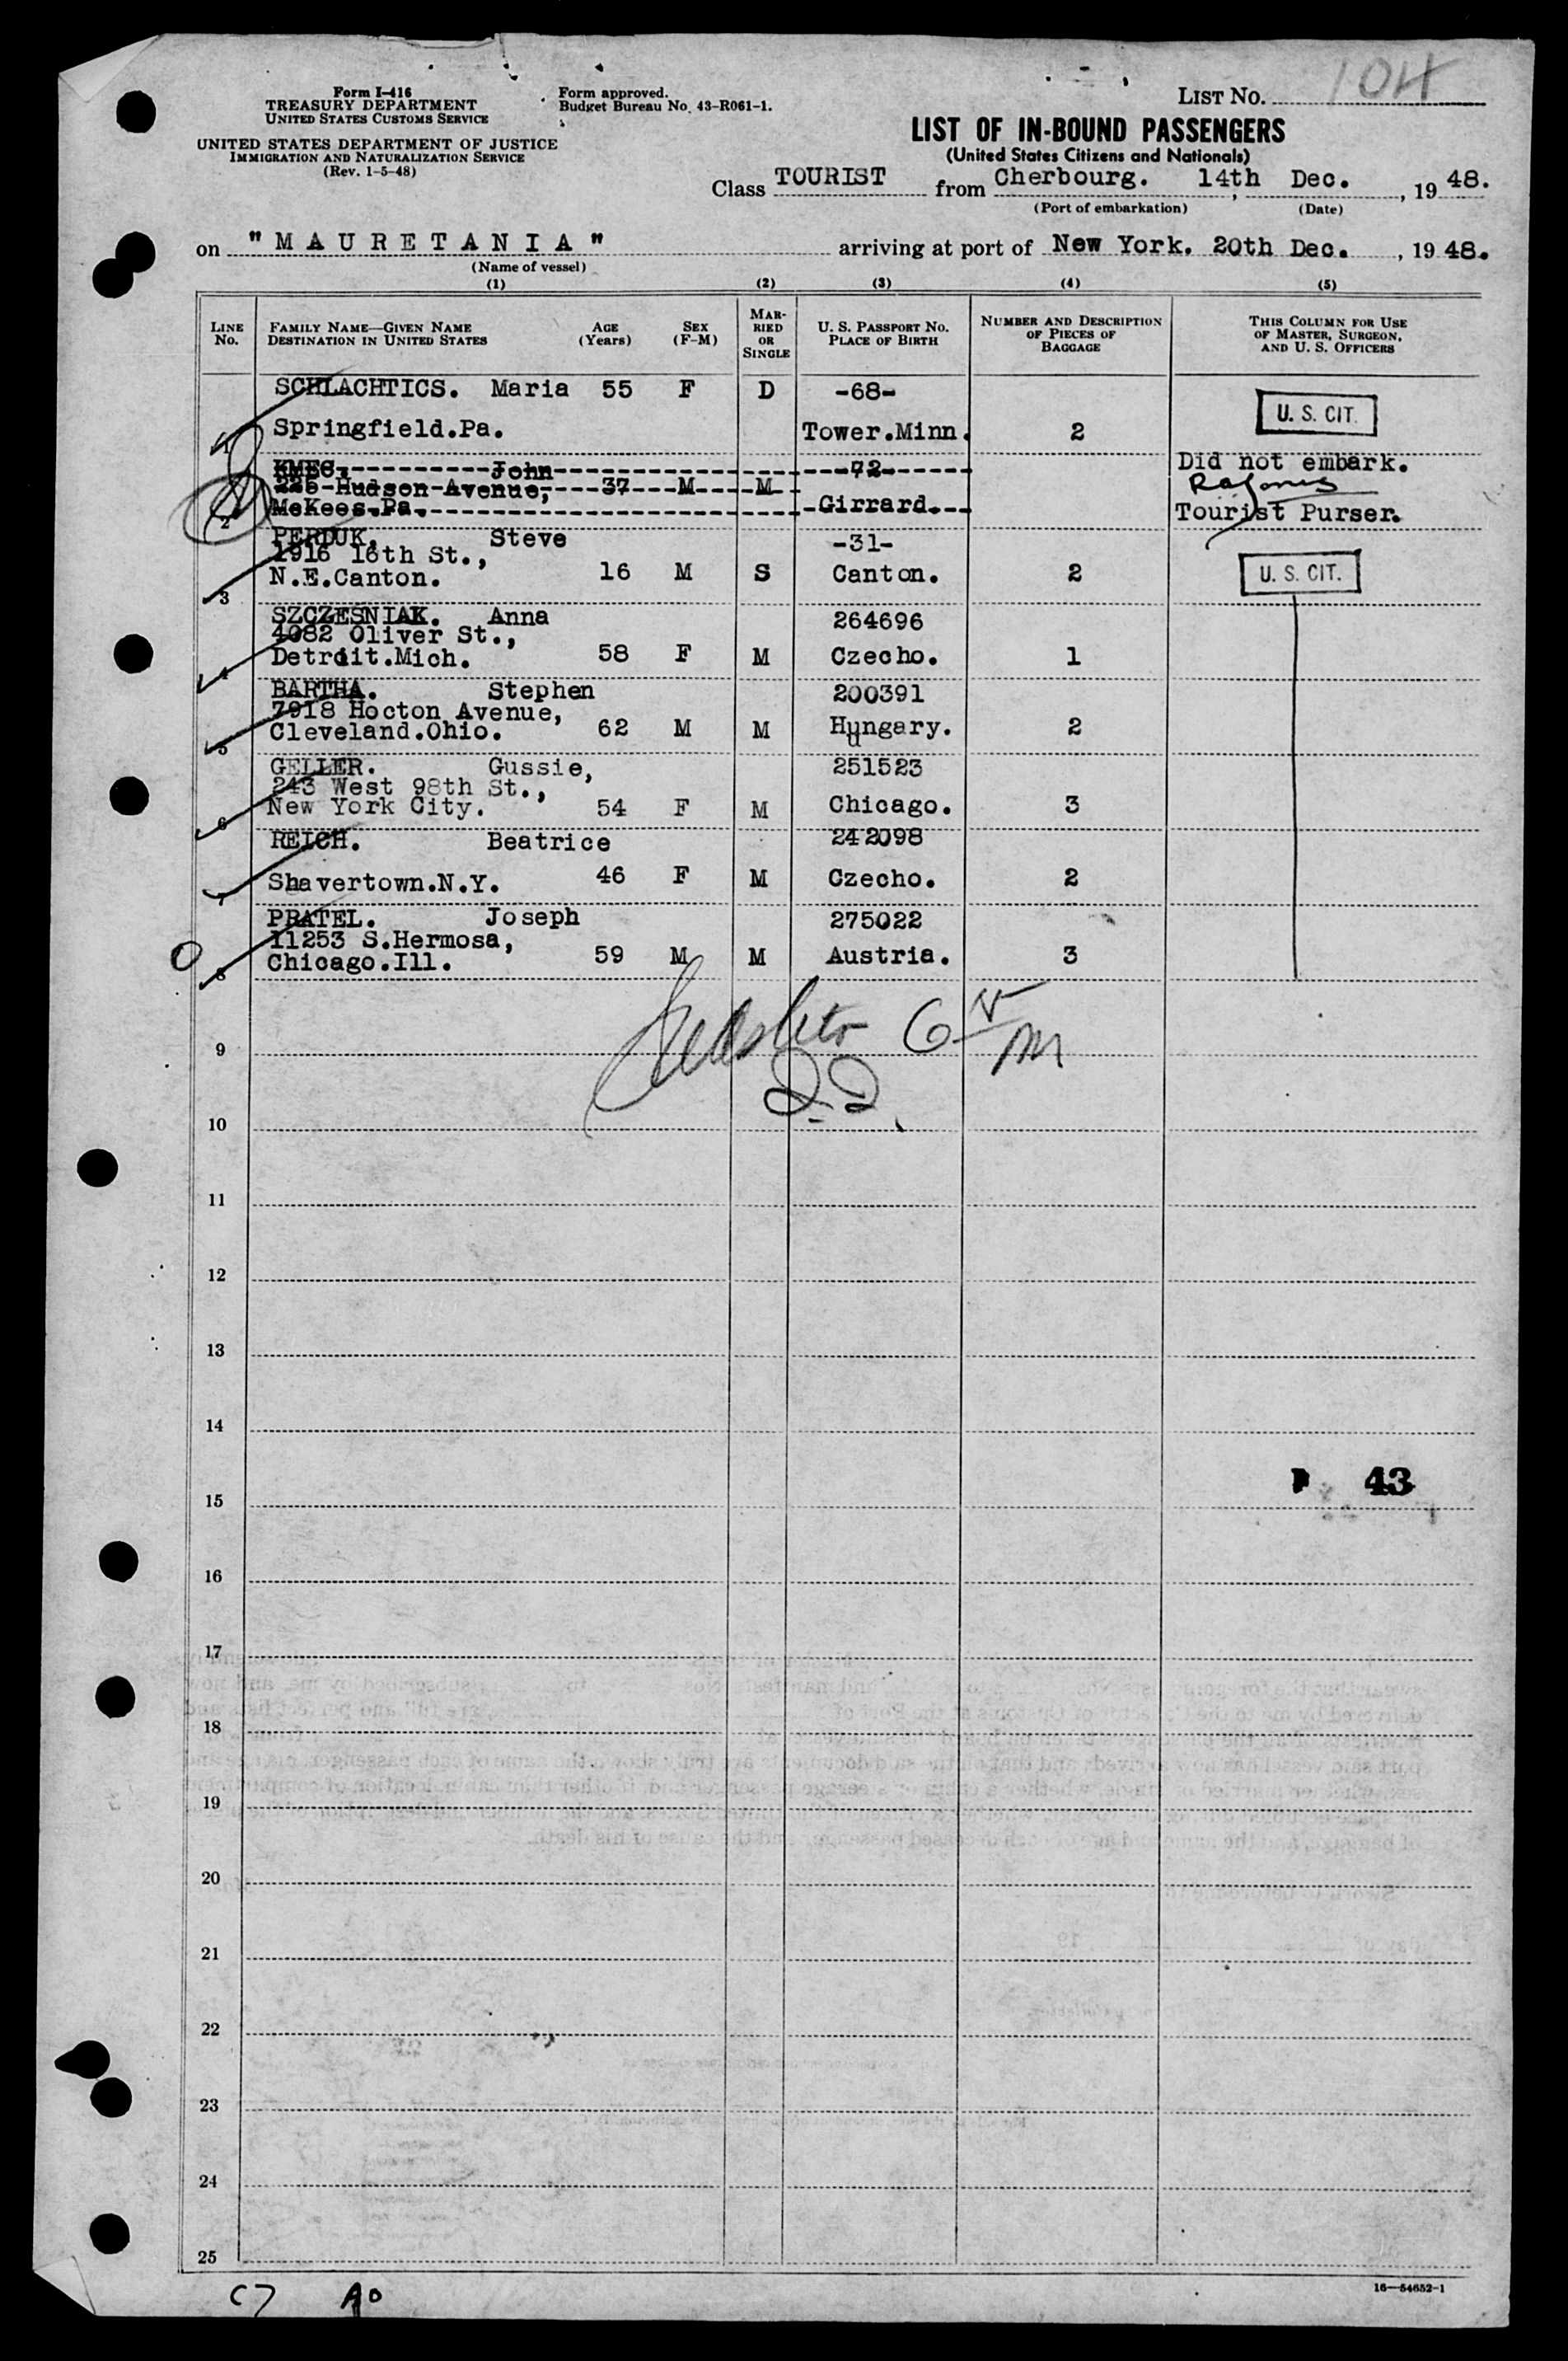 Form I-416
TREASURY DEPARTMENT
UNITED STATES CUSTOMS SERVICE
UNITED STATES DEPARTMENT OF JUSTICE
IMMIGRATION AND NATURALIZATION SERVICE
(Rev. 1-5-48)
Form approved.
Budget Bureau No. 43-R061-1.
LIST NO. 104
LIST OF IN-BOUND PASSENGERS
(United States Citizens and Nationals)
Class TOURIST from Cherbourg. 14th Dec. , 19 48.
(Port of embarkation) (Date)
on "MAURETANIA" arriving at port of New York. 20th Dec. , 19 48.
(Name of vessel)
(1) (2) (3) (4) (5)
LINE NO. FAMILY NAME—GIVEN NAME DESTINATION IN UNITED STATES AGE (Years) SEX (F-M) MARRIED OR SINGLE U. S. PASSPORT NO. PLACE OF BIRTH NUMBER AND DESCRIPTION OF PIECES OF BAGGAGE THIS COLUMN FOR USE OF MASTER, SURGEON, AND U. S. OFFICERS
SCHLACHTICS. Maria 55 F D -68-
U. S. CIT.
1 Springfield.Pa. Tower.Minn. 2
KMEC. John -72- Did not embark.
225 Hudson Avenue, 37 M M
2 McKees.Pa. Girrard. Tourist Purser.
PERDUK, Steve -31-
1916 16th St.,
3 N.E.Canton. 16 M S Canton. 2 U. S. CIT.
SZCZESNIAK. Anna 264696
4082 Oliver St.,
4 Detroit.Mich. 58 F M Czecho. 1
BARTHA. Stephen 200391
7918 Hocton Avenue,
5 Cleveland.Ohio. 62 M M Hungary. 2
GELLER. Gussie, 251523
243 West 98th St.,
6 New York City. 54 F M Chicago. 3
REICH. Beatrice 242098
7 Shavertown.N.Y. 46 F M Czecho. 2
PRATEL. Joseph 275022
11253 S.Hermosa,
8 Chicago.Ill. 59 M M Austria. 3
9
10
11
12
13
14
43
15
16
17
18
19
20
21
22
23
24
25
16—54652-1